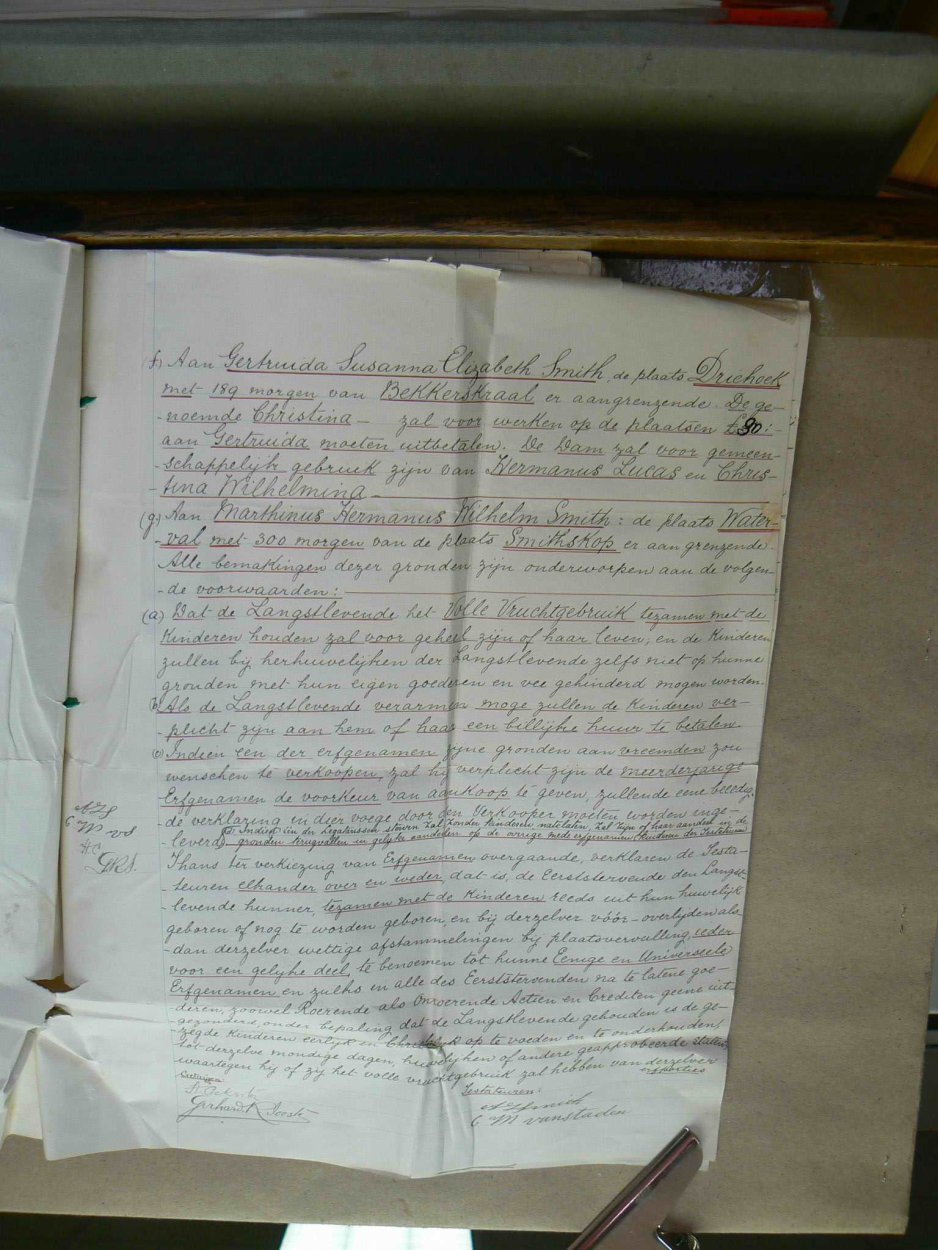 (f) Aan Gertruida Susanna Elizabeth Smith, de plaats Driehoek
met 189 morgen van Bekkerskraal er aangrenzende. De ge-
-noemde Christina — zal voor werken op de plaatsen £30:
aan Gertruida moeten uitbetalen. De Dam zal voor gemeen-
-schappelijk gebruik zijn van Hermanus Lucas en Chris-
-tina Wilhelmina
(g) Aan Marthinus Hermanus Wilhelm Smith: de plaats Water-
-val met 300 morgen van de plaats Smithskop er aangrenzende.
Alle bemakingen dezer gronden zijn onderworpen aan de volgen-
-de voorwaarden:
(a) Dat de Langstlevende het Volle Vruchtgebruik tezamen met de
Kinderen houden zal voor geheel zijn of haar leven; en de Kinderen
zullen bij herhuwelijken der Langstlevende zelfs niet op hunne
gronden met hun eigen goederen en vee gehinderd mogen worden.
b. Als de Langstlevende verarmen moge zullen de Kinderen ver-
-plicht zijn aan hem of haar een billijke huur te betalen.
(c) Indien een der erfgenamen zijne gronden aan vreemden zou
wenschen te verkoopen, zal hij verplecht zijn de meerderjarige
Erfgenamen de voorkeur van aankoop te geven, zullende eene beëedig-
-de verklaring in dier voege door den Verkooper moeten worden inge-
-leverd. Indien een der Legatarissen sterven zal zonder kinderen natelaten, zal zijn of haar aandeel in de
gronden terugvallen in gelijke aandeelen op de overige mede erfgenamen Kinderen der Testateuren
Thans ter verkiezing van Erfgenamen overgaande, verklaren de Testa-
-teuren elkander over en weder, dat is, de Eerststervende den Langst-
-levende hunner, tezamen met de Kinderen reeds uit hun huwelijk
geboren of nog te worden geboren en bij derzelver vóór-overlijden als
dan derzelver wettige afstammelingen bij plaatsvervulling, ieder
voor een gelijke deel, te benoemen tot hunne Eenige en Universeele
Erfgenamen en zulks in alle des Eerststervenden na te latene goe-
-deren, zoowel Roerende als Onroerende Actien en Crediten geene uit-
gezonderd, onder bepaling dat de Langstlevende gehouden is de ge-
-zegde Kinderen eerlijk en Christelijk op te voeden en te onderhouden,
tot derzelve mondige dagen, huwelijken of andere geapprobeerde staten
waartegen hij of zij het volle vruchtgebruik zal hebben van derzelver
erfporties
Getuigen
Testateuren:
Gerhard K Jooste
C M van staden
C M v S
H.C.